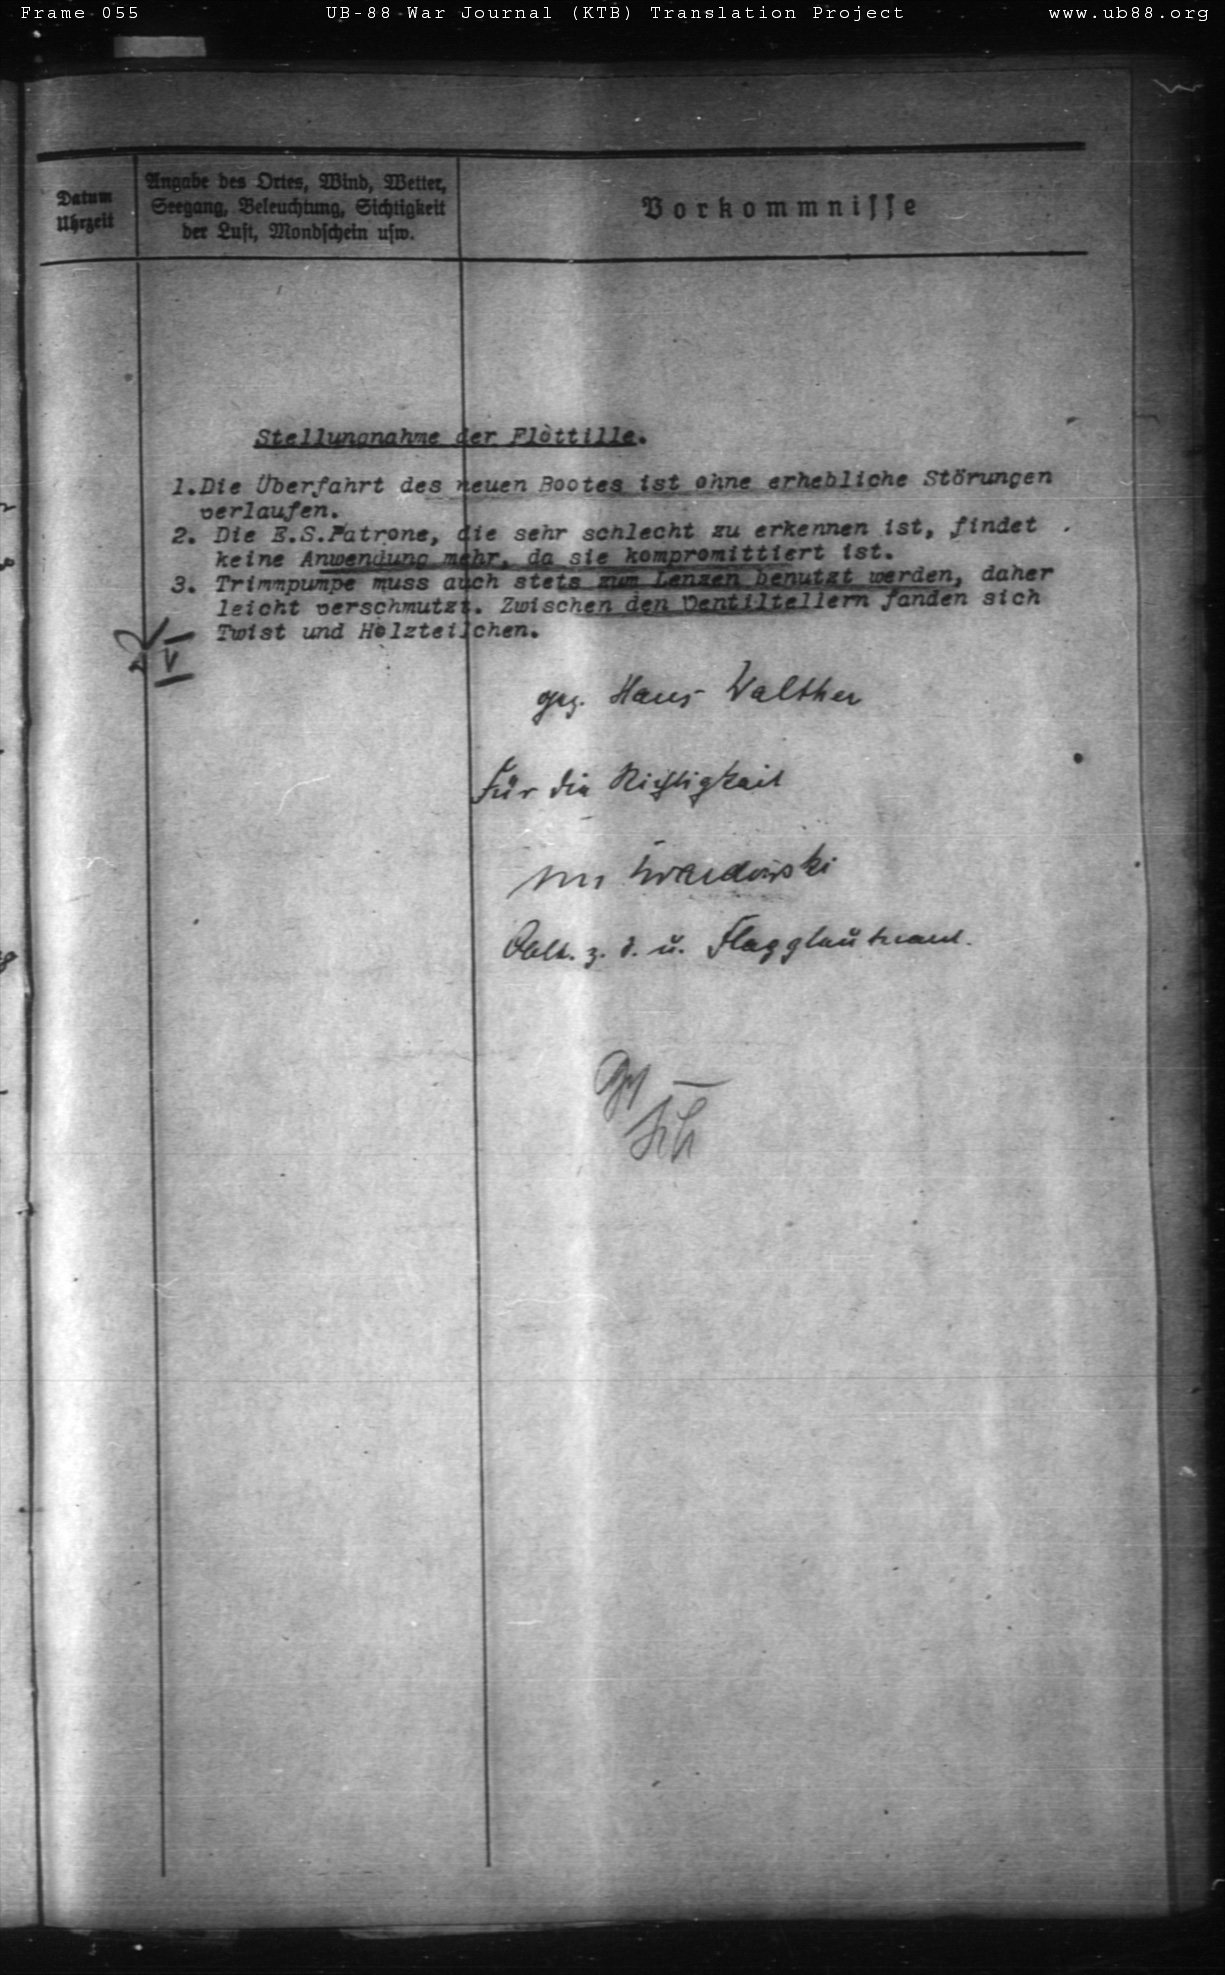 Frame 055 UB-88 War Journal (KTB) Translation Project www.ub88.org
Datum
Uhrzeit
Angabe des Ortes, Wind, Wetter,
Seegang, Beleuchtung, Sichtigkeit
der Luft, Mondschein usw.
Vorkommnisse
Stellungnahme der Flottille.
1. Die Überfahrt des neuen Bootes ist ohne erhebliche Störungen
verlaufen.
2. Die E.S.Patrone, die sehr schlecht zu erkennen ist, findet
keine Anwendung mehr, da sie kompromittiert ist.
3. Trimmpumpe muss auch stets zum Lenzen benutzt werden, daher
leicht verschmutzt. Zwischen den Ventiltellern fanden sich
Twist und Holzteilchen.
V
gez. Hans Walther
Für die Richtigkeit
Oblt. z. S. u. Flaggleutnant.